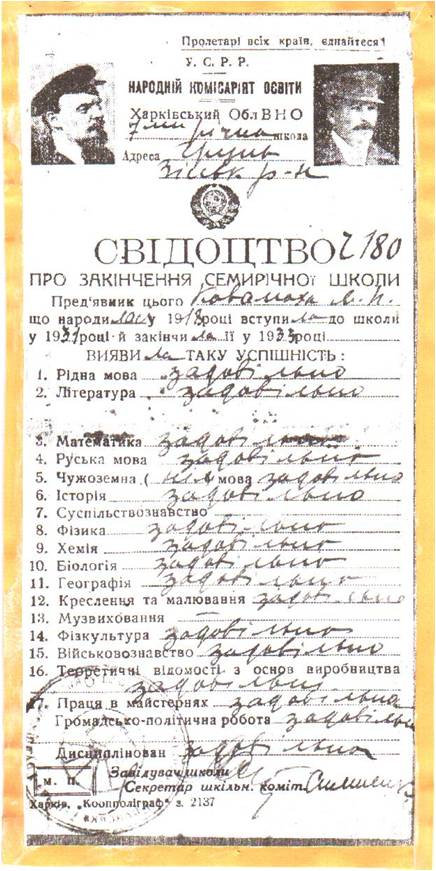 Пролетарі всіх країн, єднайтеся!
У. С. Р. Р.
НАРОДНІЙ КОМІСАРІЯТ ОСВІТИ
Харківський ОблВНО
7ми річна школа
Адреса
р-н
СВІДОЦТВО 2180
ПРО ЗАКІНЧЕННЯ СЕМИРІЧНОЇ ШКОЛИ
Пред'явник цього
що народилась у 1918 році вступила до школи
у 1931 році й закінчила її у 1933 році.
ВИЯВИла ТАКУ УСПІШНІСТЬ:
1. Рідна мова задовільно
2. Література задовільно
3. Математика задовільно
4. Руська мова задовільно
5. Чужоземна (нім мова задовільно
6. Історія задовільно
7. Суспільствознавство
8. Фізика задовільно
9. Хемія задовільно
10. Біологія задовільно
11. Географія задовільно
12. Креслення та малювання задовільно
13. Музвиховання —
14. Фізкультура задовільно
15. Військовознавство задовільно
16. Теоретичні відомості з основ виробництва
задовільно
17. Праця в майстернях задовільно
Громадсько-політична робота задовільно
Дисциплінован задовільно
М. П. Завідувач школи
Секретар шкільн. коміт.
Харків, „Коопполіграф" з. 2137